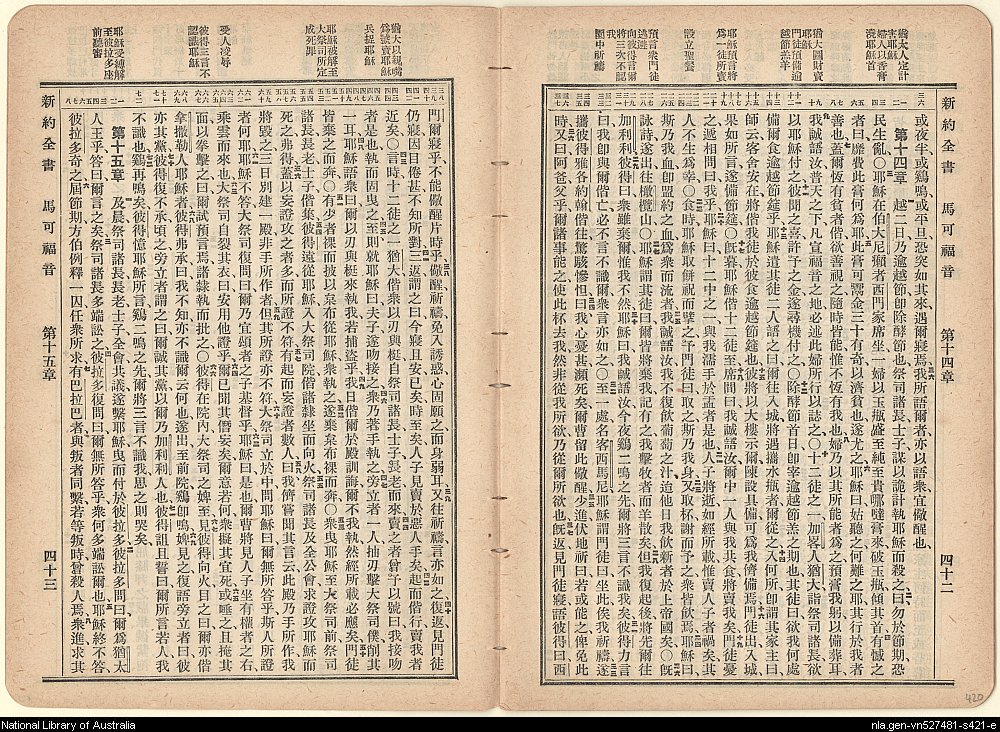 猶太人定計害耶穌
婦人以香膏澆耶穌首
猶大圖財賣耶穌
門徒預備逾越節羔羊
耶穌預言將為一徒所賣
設立聖餐
預言衆門徒逃避
向彼得言爾將三次不認我
園中祈禱
新約全書 馬可福音 第十四章 四十二
或夜半或鷄鳴或平旦恐突如其來遇爾寢焉我所語爾者亦以語衆宜儆醒也
第十四章 越二日乃逾越節即除酵節也祭司諸長士子謀以詭計執耶穌而殺之曰勿於節期恐
民生亂○耶穌在伯大尼癩者西門家席坐一婦以玉瓶盛至純至貴哪噠膏來破玉瓶傾其首有憾之
者曰靡費此膏何為耶此膏可鬻金三十有奇以濟貧也遂尤之耶穌曰姑聽之何難之耶其行於我者
善也蓋爾恆有貧者偕欲善視之隨時皆能惟不恆有我也婦乃以其所能者為之預膏我躬以備葬耳
我誠語汝普天之下凡宣福音之地必述此婦所行以誌之○十二徒之一加畧人猶大詣祭司諸長欲
以耶穌付之彼聞之喜許予之金遂尋機付之○除酵節首日即宰逾越節羔之期也其徒曰欲我何處
備爾食逾越節筵乎耶穌遣其徒二人語之曰爾往入城將遇攜水瓶者爾從之入何所即謂其家主曰
師云客舍安在我將偕我徒於彼食逾越節筵也彼將以大樓示爾陳設具備可為我儕備焉其徒出入城
果如所言遂備節筵○既暮耶穌偕十二徒至席間曰我誠語汝爾中一人與我共食將賣我矣門徒憂
之遞相問曰我乎耶穌曰十二中之一與我濡手於盂者是也人子將逝如經所載惟賣人子者禍矣其
人不生為幸○食時耶穌取餅祝而擘之予門徒曰取之斯乃我身又取杯謝而予之衆皆飲焉耶穌曰
斯乃我血即盟約之血為衆而流者我誠語汝我不復飲葡萄之汁迨他日我飲新者於上帝國矣○既
詠詩遂出往橄欖山○耶穌謂其徒曰爾衆皆將棄我記有之我擊牧者而羊散矣但我復起後將先爾往
加利利彼得曰衆雖棄爾惟我不然耶穌曰我誠語汝今夜鷄二鳴之先爾將三言不識我矣彼得力言
曰我即與爾偕亡必不言不識爾衆言亦如之○至一處名客西馬尼耶穌謂門徒曰坐此俟我祈禱遂
攜彼得雅各約翰偕往驚駭慘怛曰我心憂甚瀕死矣爾曹留此儆醒少進伏地祈曰若或能之俾免此
時又曰阿爸父乎爾諸事能之使此杯去我然非從我所欲乃從爾所欲也既返見門徒寢語彼得曰西
猶大以親嘴為號賣耶穌
兵捉耶穌
耶穌被解至大祭司所定成死罪
受人淩辱
彼得三言不認識耶穌
耶穌受縛解至彼拉多座前聽審
門爾寢乎不能儆醒片時乎儆醒祈禱免入誘惑心固願之而身弱耳又往祈禱言亦如之復返見門徒
仍寢因目倦甚不知所對三返謂之曰今爾寢且安已矣時至矣人子見賣於惡人手矣起而偕行賣我者
近矣○言時十二徒之一猶大偕衆以刃與梃自祭司諸長士子長老而來賣之者曾予以號曰我接吻
者是也執而固曳之至則就耶穌曰夫子遂吻接之衆乃著手執之旁立者一人抽刃擊大祭司僕削其
一耳耶穌語衆曰爾以刃與梃來執我若捕盜乎我日偕爾於殿訓誨爾不我執然經所載必應矣門徒
皆棄之而奔○有少者裸而披以枲布從耶穌衆執之遂棄枲布裸而奔○衆曳耶穌至大祭司前祭司
諸長長老士子偕集彼得遠從耶穌入大祭司院偕諸隸坐而向火祭司諸長及全公會求證攻耶穌而
死之弗得蓋以妄證攻之者多而所證不符有起而妄證者數人曰我儕嘗聞其言云此殿乃手所作我
將毀之三日別建一殿非手所作者但其所證亦不符大祭司立於中間耶穌曰爾無所答乎斯人所證
者何耶耶穌不答大祭司復問曰爾乃宜頌者之子基督乎耶穌曰是也爾曹將見人子坐有權者之右
乘雲而來也大祭司自裂其衣曰安用他證乎爾已聞其僭妄矣爾意若何衆擬其宜死或唾之且掩其
面以拳擊之曰爾試預言焉諸隸執而批之○彼得在院內大祭司之婢至見彼得向火目之曰爾亦偕
拿撒勒人耶穌者彼得弗承曰我不知亦不識爾云何也遂出至前院鷄即鳴婢見之復語旁立者曰彼
亦其黨彼得復不承頃之旁立者謂之曰爾誠其黨以爾乃加利利人也彼得詛且誓曰爾所言若人我
不識也鷄再鳴矣彼得憶耶穌所言鷄二鳴之先爾將三言不識我思之則哭矣
第十五章 及晨祭司諸長長老士子全會共議遂繫耶穌曳而付於彼拉多彼拉多問曰爾為猶太
人王乎答曰爾言之矣祭司諸長多端訟之彼拉多復問曰爾無所答乎衆何多端訟爾也耶穌終不答
彼拉多奇之屆節期方伯例釋一囚任衆所求有巴拉巴者與叛者同繫若等叛時曾殺人焉衆進求其
新約全書 馬可福音 第十五章 四十三
420
National Library of Australia
nla.gen-vn527481-s421-e